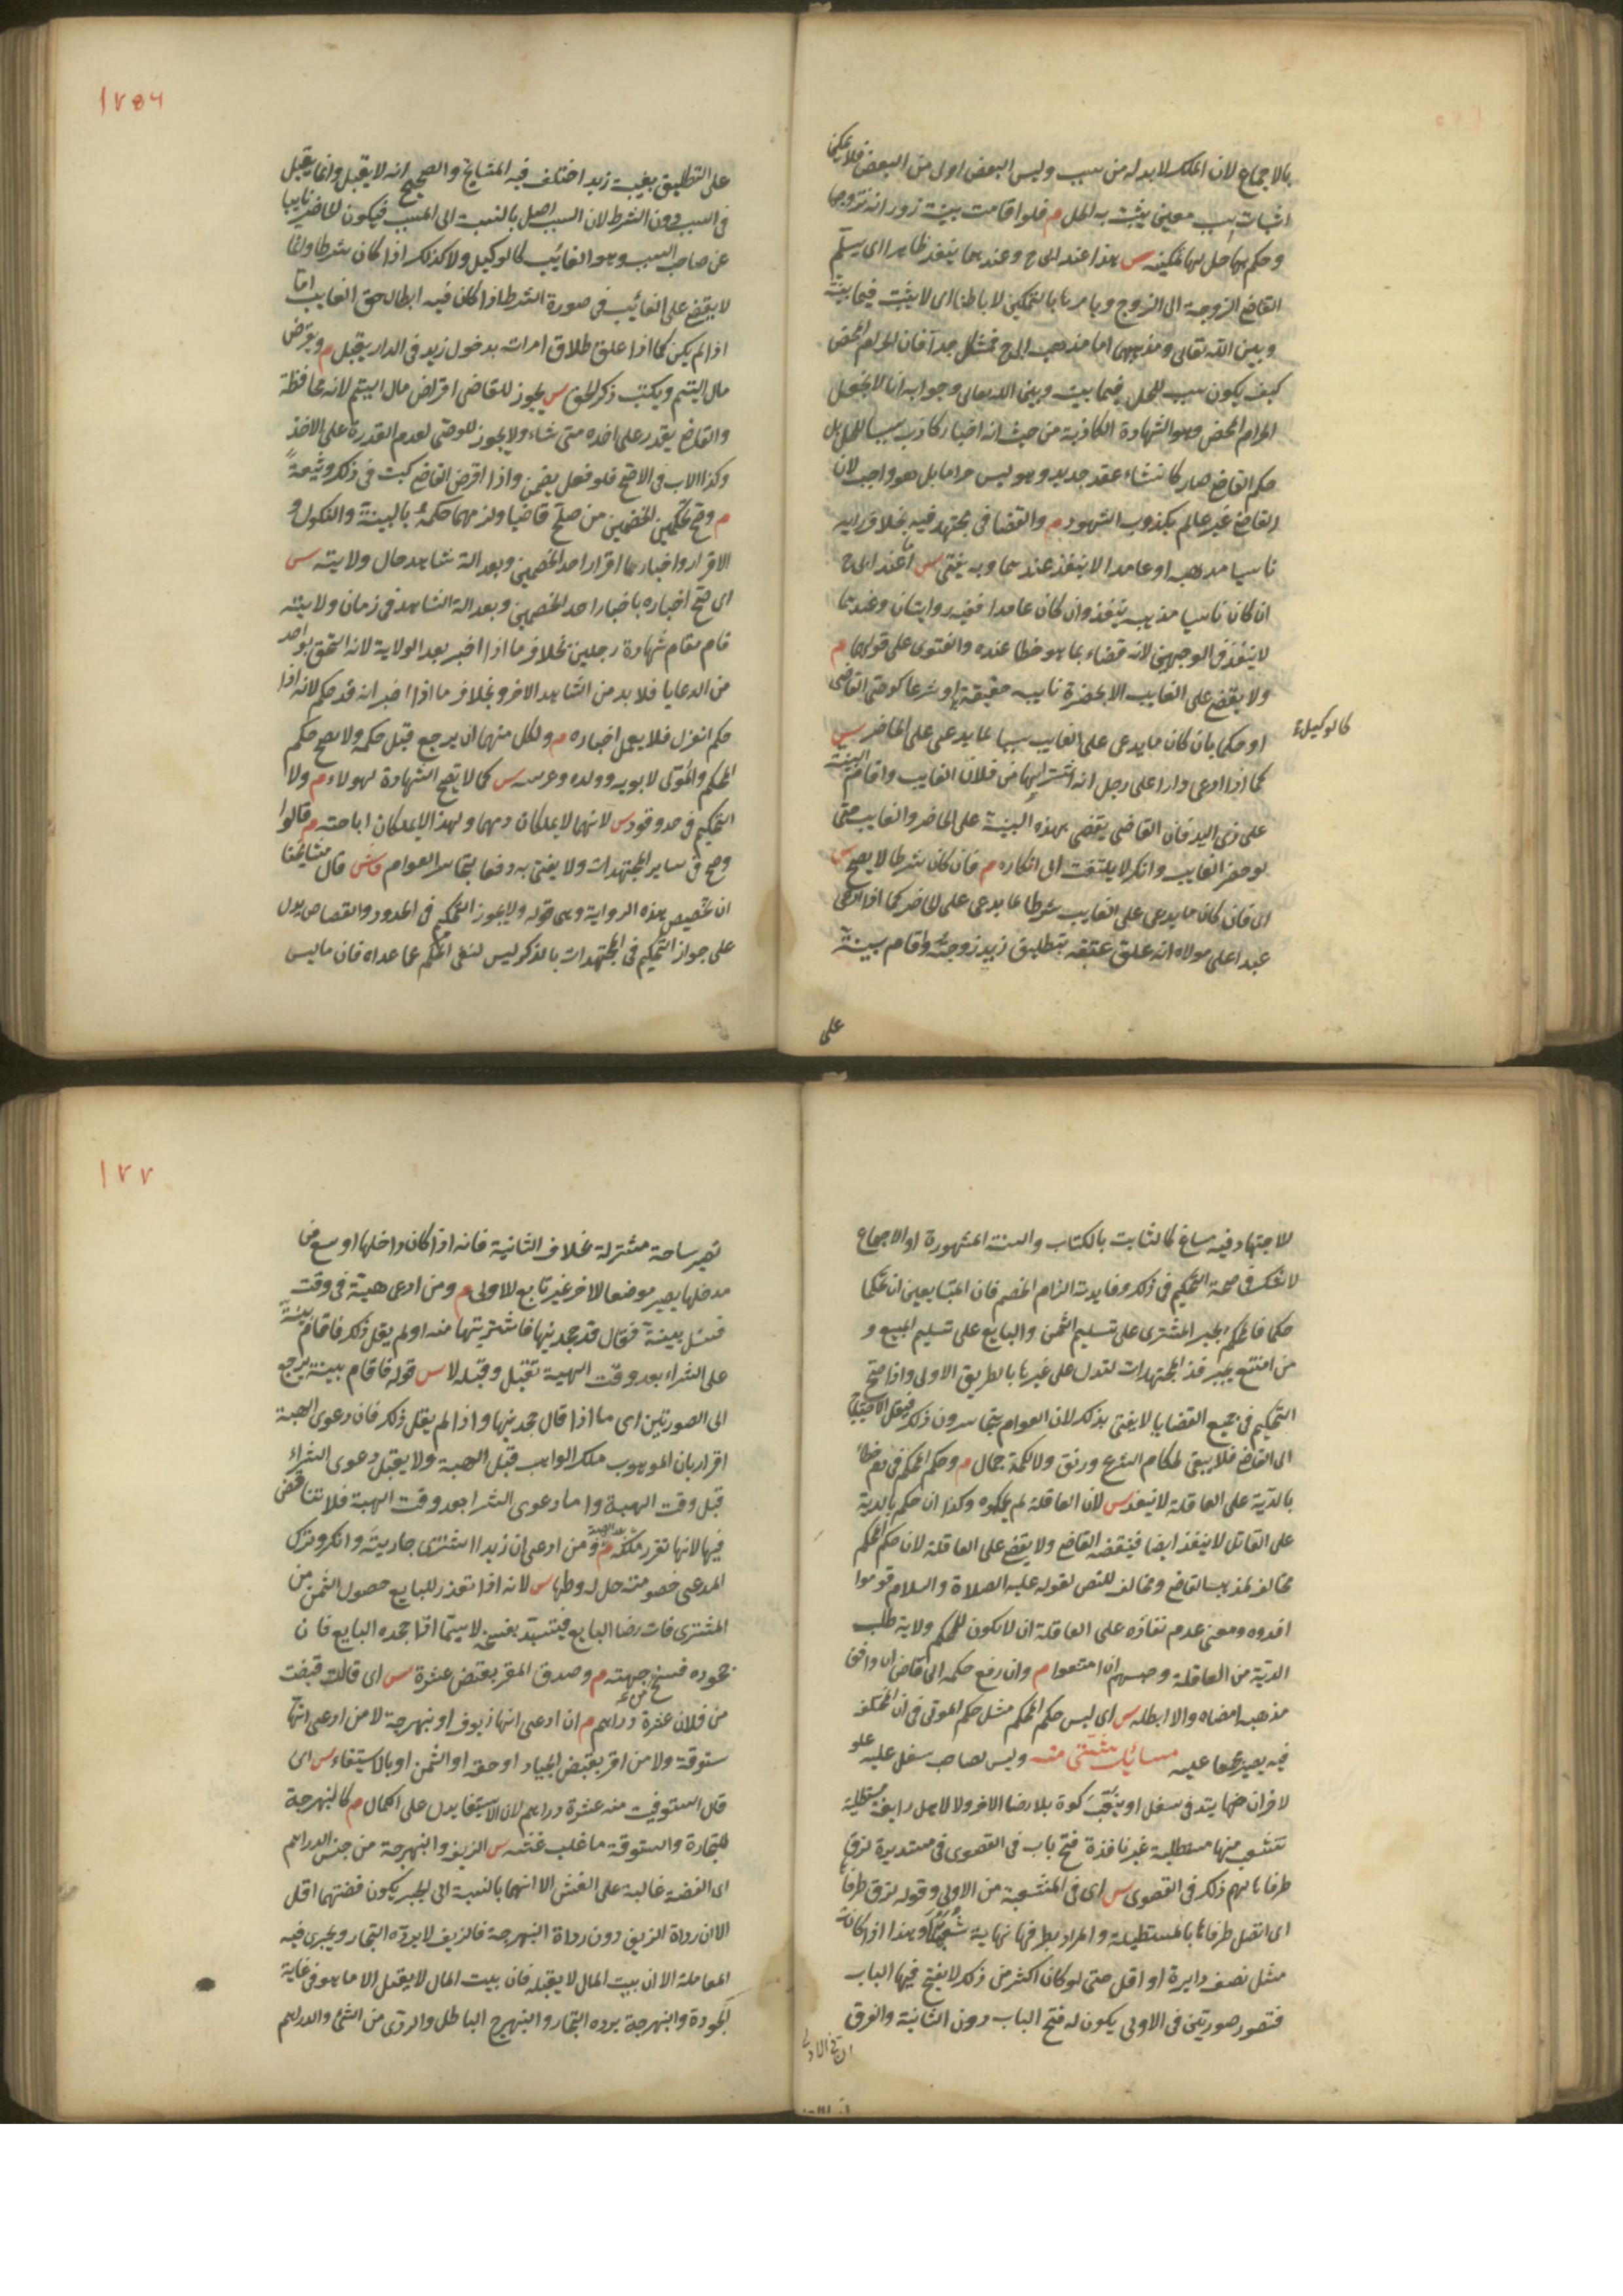 بالاجماع لان الملك لابد له من سبب وليس البعض اولى من البعض فلا يمكنها
اثبات سبب معين يثبت به الحل م فلو اقامت بينة زور انه تزوجها
وحكم بها حل لها تمكينه س هذا عند ابى ح وعندهما ينفذ ظاهرا اى يسلم
القاضى الزوجة الى الزوج ويامرها بالتمكين لا باطنا اى لا يثبت فيما بينه
وبين الله تعالى ومذهبهما اما مذهب ابى ح فمشكل جدا فان الحرام المحض
كيف يكون سببا للحل فيما بينه وبين الله تعالى وجوابه انا لا نجعل
الحرام المحض وهو الشهادة الكاذبة من حيث انه اخبار كاذب سببا للحل بل
حكم القاضى صار كانشاء عقد جديد وهو ليس حراما بل هو واجب لان
القاضى غير عالم بكذب الشهود م والقضا فى مجتهد فيه بخلاف رايه
ناسيا مذهبه او عامدا لا ينفذ عندهما وبه يفتى س اما عند ابى ح
ان كان ناسيا مذهبه ينفذ وان كان عامدا ففيه روايتان وعندهما
لا ينفذ فى الوجهين لانه قضاء بما هو خطا عنده والفتوى على قولهما م
ولا يقضى على الغايب الا بحضرة نايبه حقيقة او شرعا كوصى القاضى
كالوكيل
او حكما بان كان ما يدعى على الغايب سببا لما يدعى على الحاضر س
كما اذا ادعى دارا على رجل انه اشتراها من فلان الغايب واقام البينة
على ذى اليد فان القاضى يقضى بهذه البينة على الحاضر والغايب حتى
لو حضر الغايب وانكر لا يلتفت الى انكاره م فان كان شرطا لا يصح س
اى فان كان ما يدعى على الغايب شرطا لما يدعى على الحاضر كما اذا ادعى
عبد على مولاه انه علق عتقه بتطليق زيد زوجته واقام بينة
على
على التطليق بغيبة زيد اختلف فيه المشايخ والصحيح انه لا يقبل وانما يقبل
فى السبب دون الشرط لان السبب اصل بالنسبة الى المسبب فيكون الحاضر نايبا
عن صاحب السبب وهو الغائب كالوكيل ولا كذلك اذا كان شرطا وانما
لا يقضى على الغائب فى صورة الشرط اذا كان فيه ابطال حق الغايب اما
اذا لم يكن كما اذا علق طلاق امراته بدخول زيد فى الدار يقبل م ويقرض
مال اليتيم ويكتب ذكر الحق س يجوز للقاضى اقراض مال اليتيم لانه محافظة
والقاضى يقدر على اخذه متى شاء ولا يجوز للوصى لعدم القدرة على الاخذ
وكذا الاب فى الاصح فلو فعل يضمن واذا اقرض القاضى كيت فى ذلك وثيقة
م وصح تحكيم الخصمين من صلح قاضيا ولزمهما حكمه بالبينة والنكول و
الاقرار واخباره باقرار احد الخصمين وبعدالة شاهد حال ولايته س
اى صح اخباره باخبار احد الخصمين وبعدالة الشاهد فى زمان ولايته
قام مقام شهادة رجلين بخلاف ما اذا اخبر بعد الولاية لانه التحق بواحد
من الرعايا فلا بد من الشاهد الاخر وبخلاف ما اذا اخبر انه قد حكم لانه اذا
حكم انعزل فلا يعمل اخباره م ولكل منهما ان يرجع قبل حكمه ولا يصح حكم
المحكم والمولى لابويه وولده وعرسه س كما لا يصح الشهادة لهولاء م ولا
التحكيم فى حد وقود س لانهما لا يملكان دمهما ولهذا لا يملكان اباحته م قالوا
وصح فى ساير المجتهدات ولا يفتى به دفعا لتجاسر العوام ش قال مشايخنا
ان تخصيص هذه الرواية وهى قوله ولا يجوز التحكيم فى الحدود والقصاص يدل
على جواز التحكيم فى المجتهدات بالذكر ليس لنفى الحكم عما عداه فان ما ليس
للاجتهاد فيه مساغ كالثابت بالكتاب والسنة المشهورة او الاجماع
لا شك فى صحة التحكيم فى ذلك وفايدته الزام الخصم فان المتبايعين ان حكما
حكما فالحكم يجبر المشترى على تسليم الثمن والبايع على تسليم المبيع و
من امتنع يجبر فذا المجتهدات لتدل على غيرها بالطريق الاولى واذا صح
التحكيم فى جميع القضايا لا يفتى بذلك لان العوام يتجاسرون ذلك فيقل الاحتياج
الى القاضى فلا يبقى لحكام الشرع رونق ولا لمحكمة جمال م وحكم المحكم فى دم خطا
بالدية على العاقلة لا ينفذ س لان العاقلة لم يحكموه وكذا ان حكم بالدية
على القاتل لا ينفذ ايضا فينقضه القاضى ويقضى على العاقلة لان حكم المحكم
مخالف لمذهب القاضى ومخالف للنص لقوله عليه الصلاة والسلام قوموا
افدوه ومعنى عدم نفاذه على العاقلة ان لا يكون للمحكم ولاية طلب
الدية من العاقلة وحبسهم ان امتنعوا م وان رفع حكمه الى قاض ان وافق
مذهبه امضاه والا ابطله س اى ليس حكم المحكم مثل حكم المولى فى ان المختلف
فيه يصير مجمعا عليه مسائل شتى منه وليس لصاحب سفل عليه علو
لاخر ان يتد فى سفله او ينقب كوة بلا رضا الاخر ولا لاهل رايغة مستطيلة
تتشعب منها مستطيلة غير نافذة فتح باب فى القصوى فى مستديرة لزق
طرفاها لهم ذلك فى القصوى س اى فى المتشعبة من الاولى وقوله لزق طرفاها
اى اتصل طرفاها بالمستطيلة والمراد بطرفيها نهاية سعتها وهذا اذا كانت
مثل نصف دايرة او اقل حتى لو كان اكثر من ذلك لا يفتح فيها الباب
فتصور صورتين فى الاولى يكون له فتح الباب دون الثانية والفرق
ان فى الاولى
تصير ساحة مشتركة بخلاف الثانية فانه اذا كان داخلها اوسع من
مدخلها يصير موضعا لاخر غير تابع للاولى م ومن ادعى هبة فى وقت
فسئل بينة فقال قد جحدنيها فاشتريتها منه او لم يقل ذلك فاقام بينة
على الشراء بعد وقت الهبة تقبل وقبله لا س قوله فاقام بينة يرجع
الى الصورتين اى ما اذا قال جحدنيها واذا لم يقل ذلك فان دعوى الهبة
اقرار بان الموهوب ملك الواهب قبل الهبة ولا يقبل دعوى الشراء
قبل وقت الهبة واما دعوى الشرا بعد وقت الهبة فلا تناقض
فيها لانها تقرر ملكه بعد الهبة م ومن ادعى ان زيدا اشترى جاريته وانكر وترك
المدعى خصومته حل له وطيها س لانه اذا تعذر للبايع حصول الثمن من
المشترى فات رضا البايع فيستبد بفسخه لاسيما اذا جحده البايع فان
جحوده فسخ من جهته م وصدق المقر بقبض عشرة س اى قال قبضت
من فلان عشرة دراهم م ان ادعى انها زيوف او نبهرجة لا من ادعى انها
ستوقة ولا من اقر بقبض الجياد او حقه او الثمن او بالاستيفاء س اى
قال استوفيت منه عشرة دراهم لان الاستيفا يدل على الكمال م كالنبهرجة
للتجارة والستوقة ما غلب غشه س الزيف والنبهرجة من جنس الدراهم
اى الفضة غالبة على الغش الا انهما بالنسبة الى الجيد يكون فضتهما اقل
الا ان رداة الزيف دون رداة النبهرجة فالزيف لا يرده التجار ويجرى فيه
المعاملة الا ان بيت المال لا يقبله فان بيت المال لا يقبل الا ما هو فى غاية
الجودة والنبهرجة يرده التجار والنبهرج الباطل والردى من الشئ والدراهم